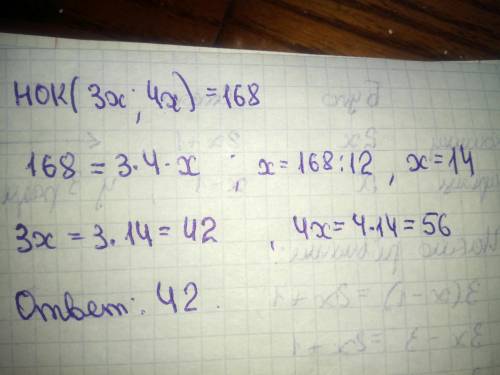 НОК(3х; 4х) = 168
168 = 3·4·х ; х = 168:12, х = 14
3х = 3·14 = 42, 4х = 4·14 = 56
Ответ: 42.